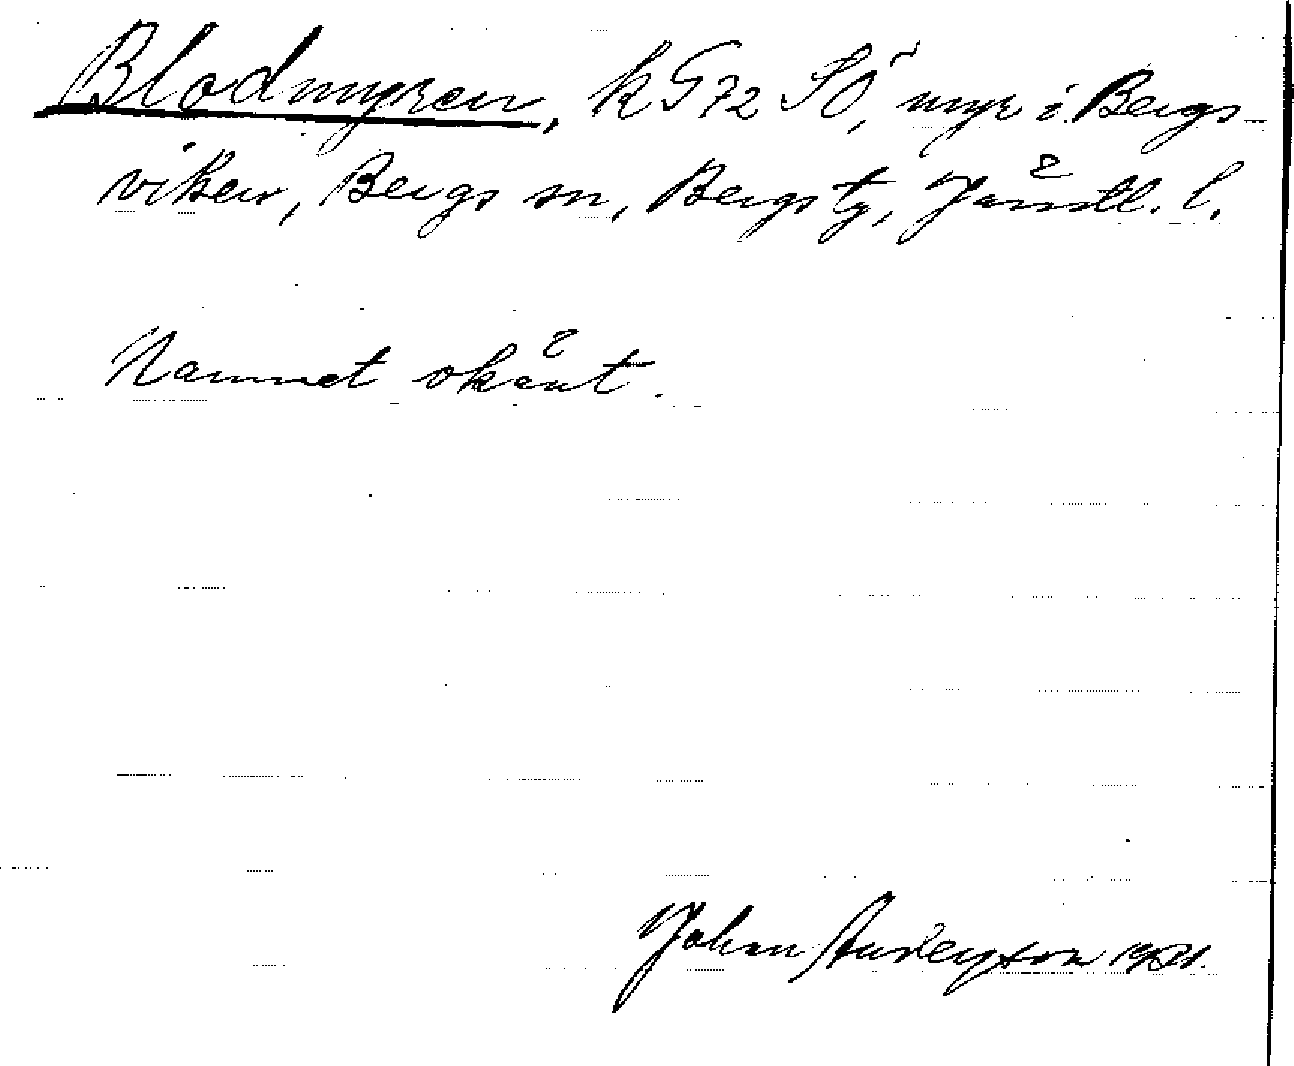 Blodmyren, k G 72 SÖ, myr i Bergs-
viken, Bergs sn, Bergs tg, Jämtl. l.
Namnet okänt.
Johan Andersson